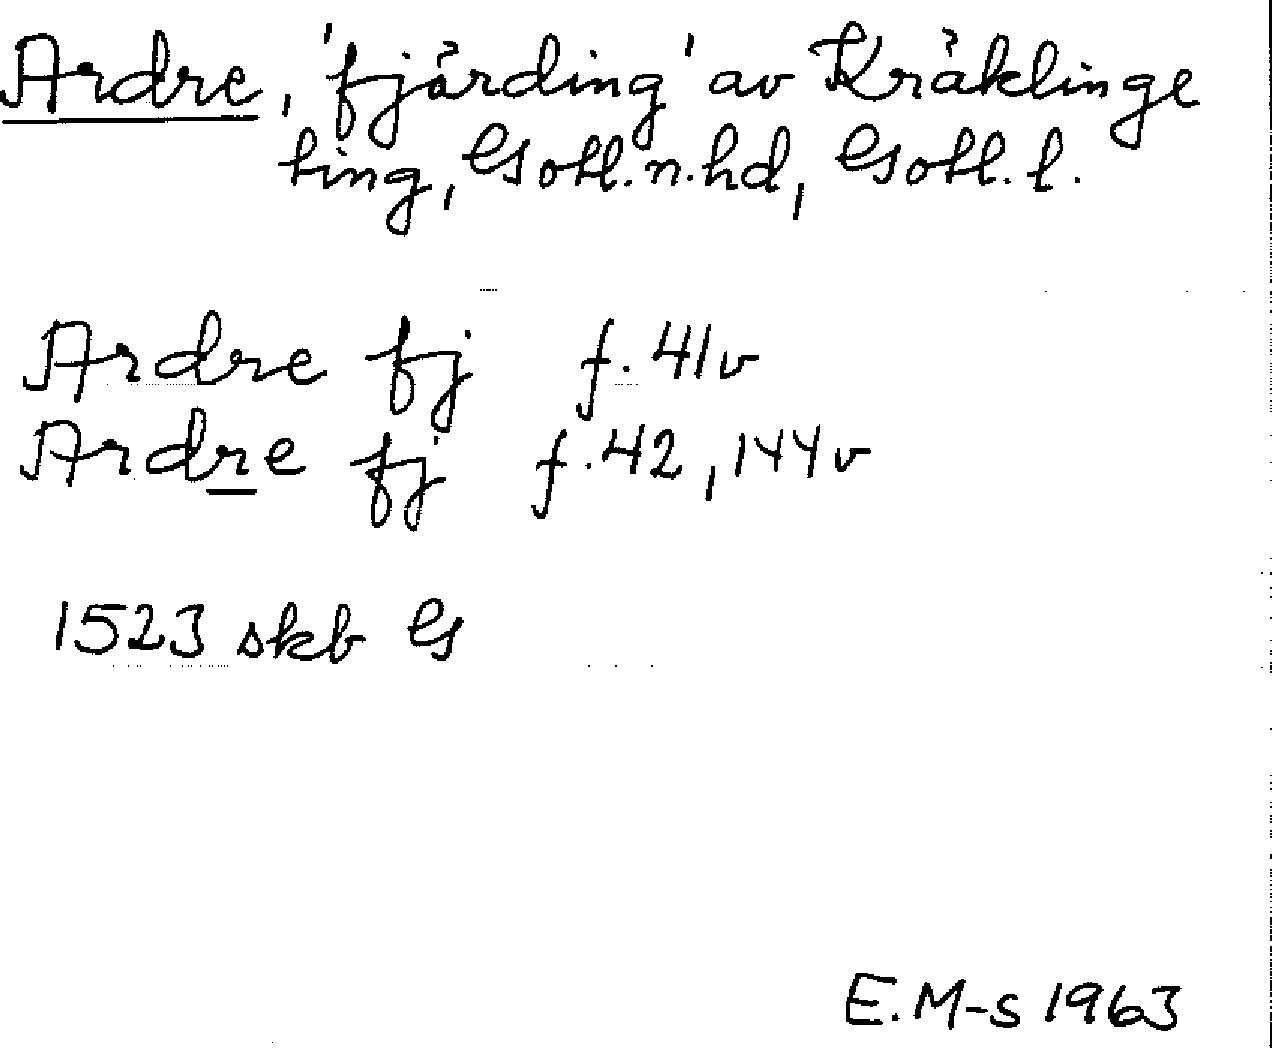 Ardre, 'fjärding' av Kräklinge
ting, Gotl. n. hd, Gotl. l.
Ardre fj f. 41v
Ardre fj f. 42, 144v
1523 skb G
E. M-s 1963